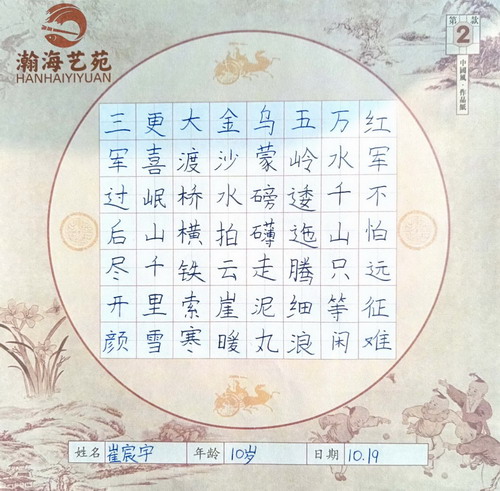 瀚海艺苑
HANHAIYIYUAN
第2款
中國風·作品紙
红军不怕远征难
万水千山只等闲
五岭逶迤腾细浪
乌蒙磅礴走泥丸
金沙水拍云崖暖
大渡桥横铁索寒
更喜岷山千里雪
三军过后尽开颜
姓名 崔宸宇 年龄 10岁 日期 10.19